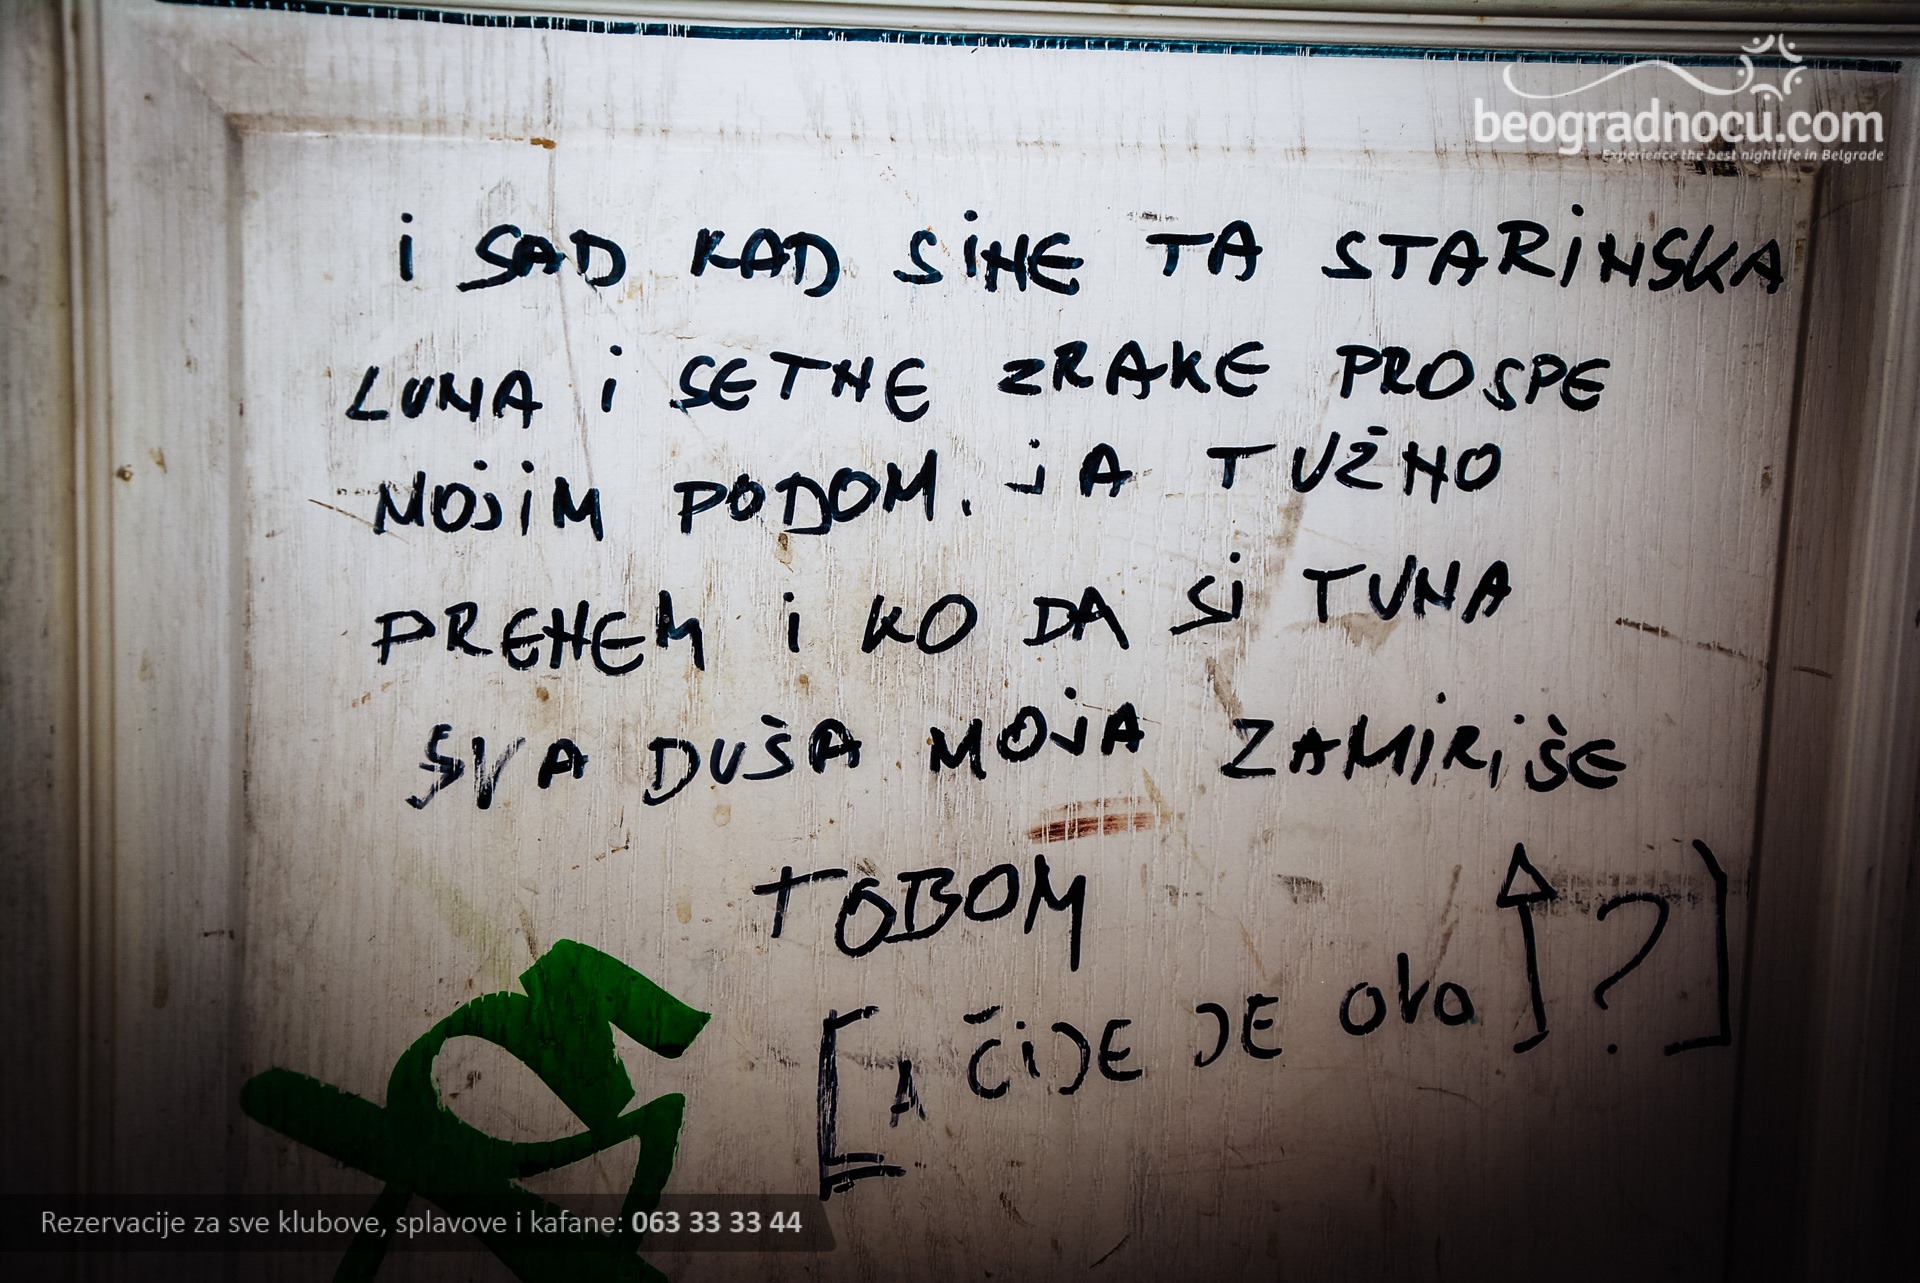 beogradnocu.com
Experience the best nightlife in Belgrade
i SAD KAD SiNE TA STARiNSKA
LUNA i SETNE ZRAKE PROSPE
MOjiM PODOM. jA TUŽNO
PRENEM i KO DA Si TUNA
SVA DUŠA MOjA ZAMiRiŠE
TOBOM
[A ČiJE JE OVO ↑?]
Rezervacije za sve klubove, splavove i kafane: 063 33 33 44